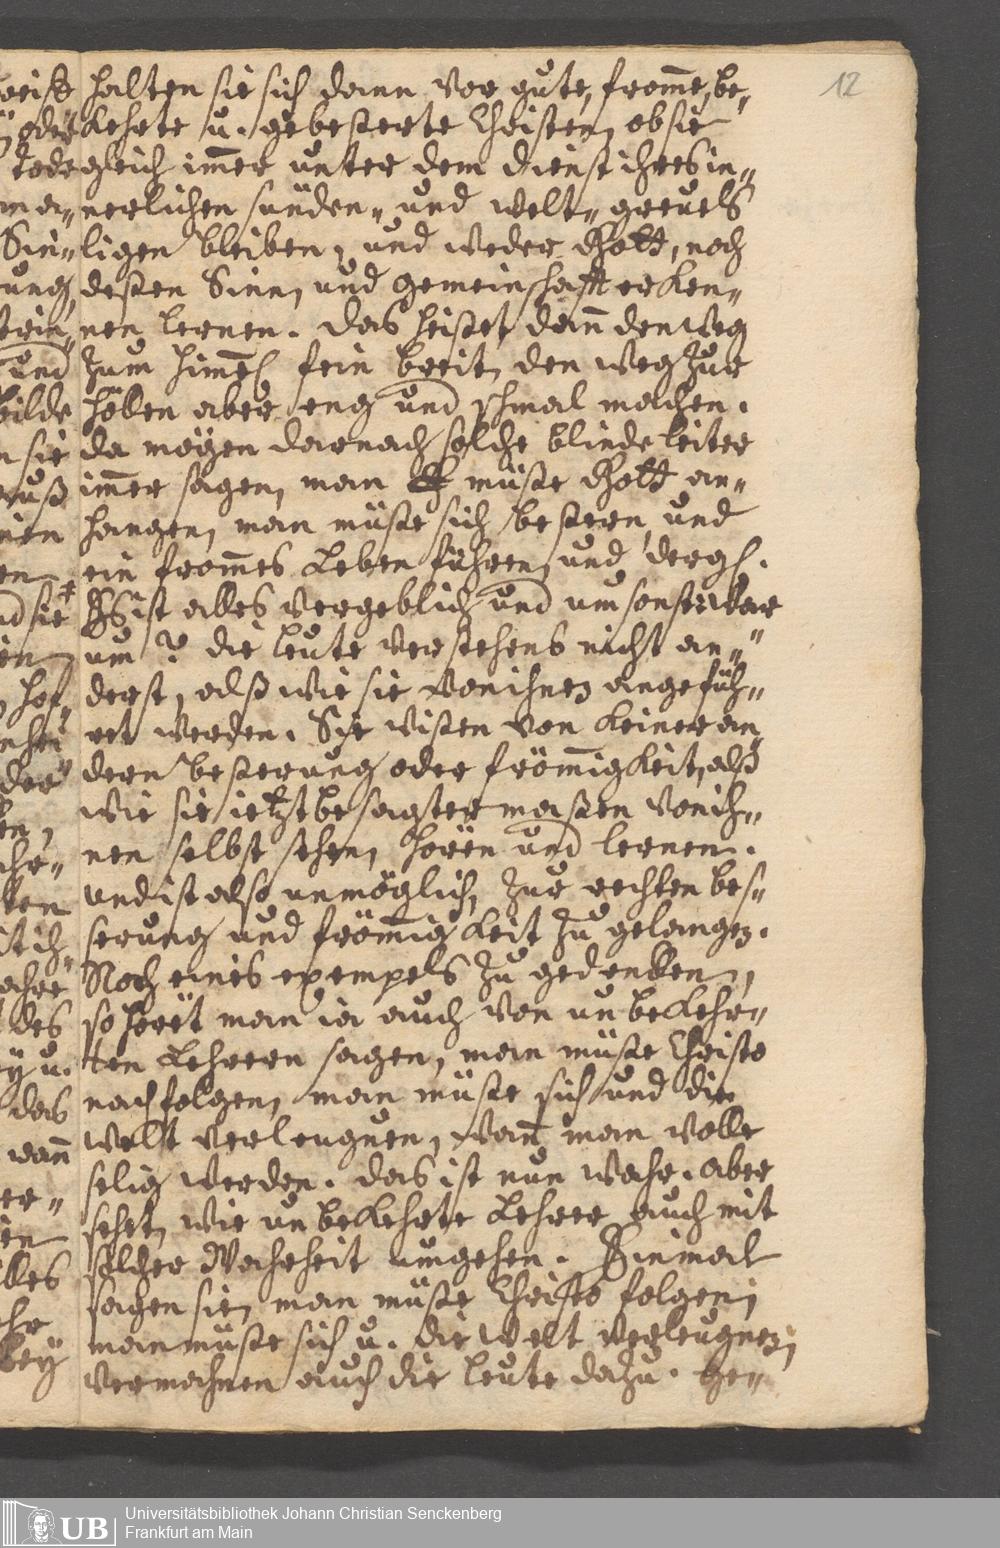 12
halten sie sich dann vor gute, from̄e, be„
kehrte u. gebesserte Christen, ob sie
gleich im̄er unter dem dienst ihres in„
nerlichen sünden„ und welt„greuels
ligen bleiben, und weder Gott, noch
dessen Sinn, und gemeinschafft erken„
nen lernen. das heisset dan̄ den weg
zum him̄el fein breit, den weg zur
höllen aber eng und schmal machen.
da mögen darnach solche blinde leiter
im̄er sagen, man müsse Gott an„
hangen, man müsse sich bessern, und
ein from̄es Leben führen, und dergl.
Es ist alles vergeblich und umsonst. war
um? die leute verstehens nicht an„
derst, alß wie sie von ihnen angefüh„
ret werden. Sie wissen von keiner an„
dern besserung oder fröm̄igkeit, alß
wie sie ietzt besagter massen von ih„
nen selbst sehen, hören und lernen.
und ist also unmöglich, zur rechten bes„
serung und fröm̄igkeit zu gelangen.
Noch eines exempels zu gedenken,
so höret man ia auch von unbekehr„
ten Lehrern sagen, man müsse Christo
nachfolgen, man müsse sich und die
welt verleugnen, wan̄ man wolle
selig werden. das ist nun wahr. aber
sehet, wie unbekehrte Lehrer auch mit
solcher Wahrheit umgehen. Einmal
sagen sie, man müsse Christo folgen,
man müsse sich u. die welt verleugnen,
vermahnen auch die leute dazu. her„
Universitätsbibliothek Johann Christian Senckenberg
Frankfurt am Main
UB